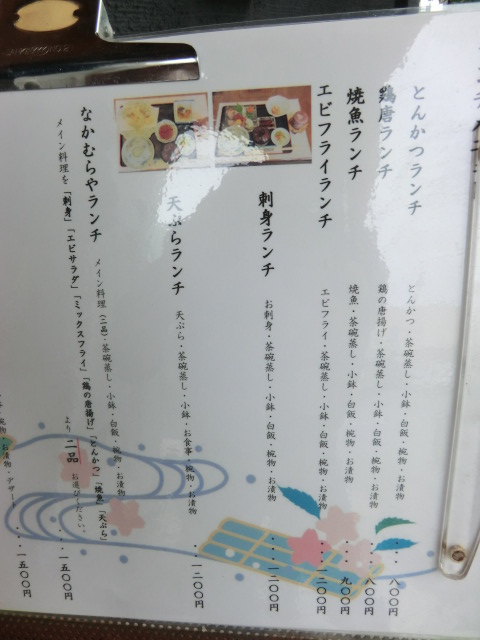 とんかつランチ
とんかつ・茶碗蒸し・小鉢・白飯・椀物・お漬物
・・・八〇〇円
鶏唐ランチ
鶏の唐揚げ・茶碗蒸し・小鉢・白飯・椀物・お漬物
・・・八〇〇円
焼魚ランチ
焼魚・茶碗蒸し・小鉢・白飯・椀物・お漬物
・・・九〇〇円
エビフライランチ
エビフライ・茶碗蒸し・小鉢・白飯・椀物・お漬物
・・・一二〇〇円
刺身ランチ
お刺身・茶碗蒸し・小鉢・白飯・椀物・お漬物
・・・一二〇〇円
天ぷらランチ
天ぷら・茶碗蒸し・小鉢・お食事・椀物・お漬物
・・・一二〇〇円
なかむらやランチ
メイン料理(二品)・茶碗蒸し・小鉢・白飯・椀物・お漬物
メイン料理を「刺身」「エビサラダ」「ミックスフライ」「鶏の唐揚げ」「とんかつ」「焼魚」「天ぷら」
より二品お選びください。
・・・一五〇〇円
お漬物・デザー
・・・一五〇〇円